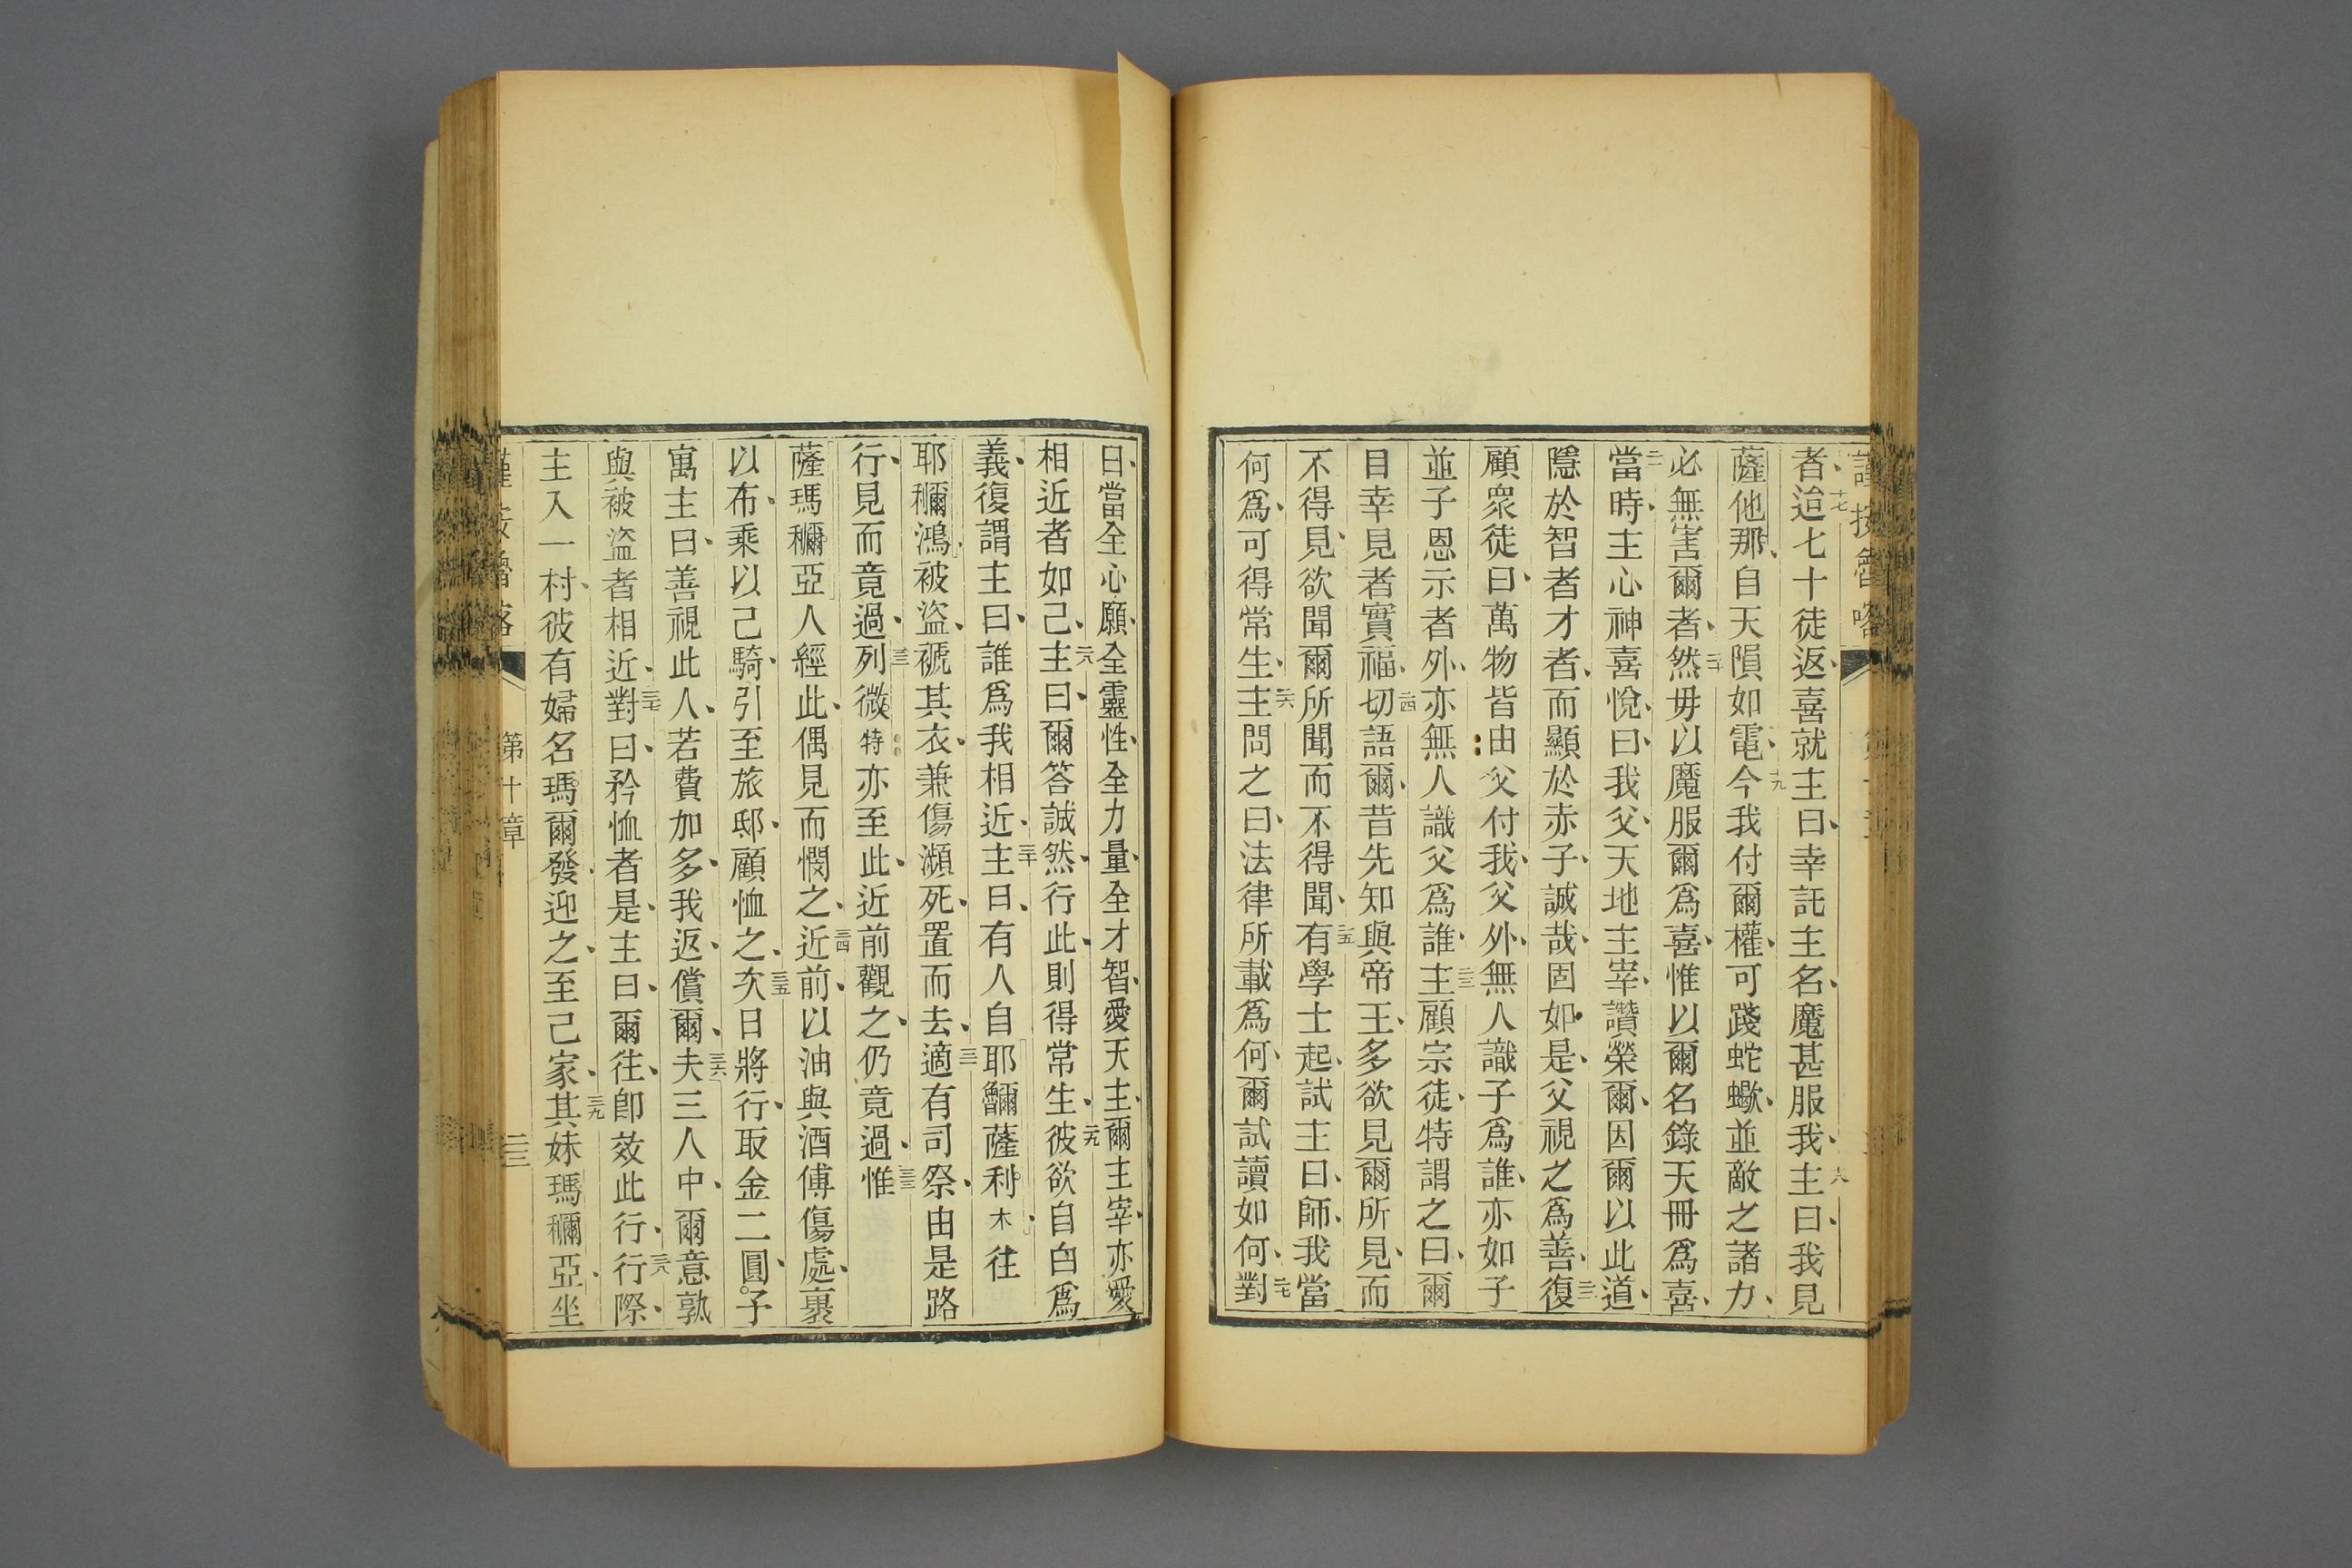 者迨七十徒返喜就主曰幸託主名魔甚服我主曰我見
薩他那自天隕如電今我付爾權可踐蛇蠍並敵之諸力
必無害爾者然毋以魔服爾爲喜惟以爾名錄天冊爲喜
當時主心神喜悅曰我父天地主宰讚榮爾因爾以此道
隱於智者才者而顯於赤子誠哉固如是父視之爲善復
顧衆徒曰萬物皆由父付我父外無人識子爲誰亦如子
並子恩示者外亦無人識父爲誰主顧宗徒特謂之曰爾
目幸見者實福切語爾昔先知與帝王多欲見爾所見而
不得見欲聞爾所聞而不得聞有學士起試主曰師我當
何爲可得常生主問之曰法律所載爲何爾試讀如何對
曰當全心願全靈性全力量全才智愛天主爾主宰亦愛
相近者如己主曰爾答誠然行此則得常生彼欲自白爲
義復謂主曰誰爲我相近主曰有人自耶薩利木往
耶鴻被盜褫其衣兼傷瀕死置而去適有司祭由是路
行見而竟過列微特亦至此近前觀之仍竟過惟
薩瑪亞人經此偶見而憫之近前以油與酒傅傷處裹
以布乘以己騎引至旅邸顧恤之次日將行取金二圓子
寓主曰善視此人若費加多我返償爾夫三人中爾意孰
與被盜者相近對曰矜恤者是主曰爾往卽效此行行際
主入一村彼有婦名瑪爾發迎之至己家其妹瑪亞坐
第十章
二三